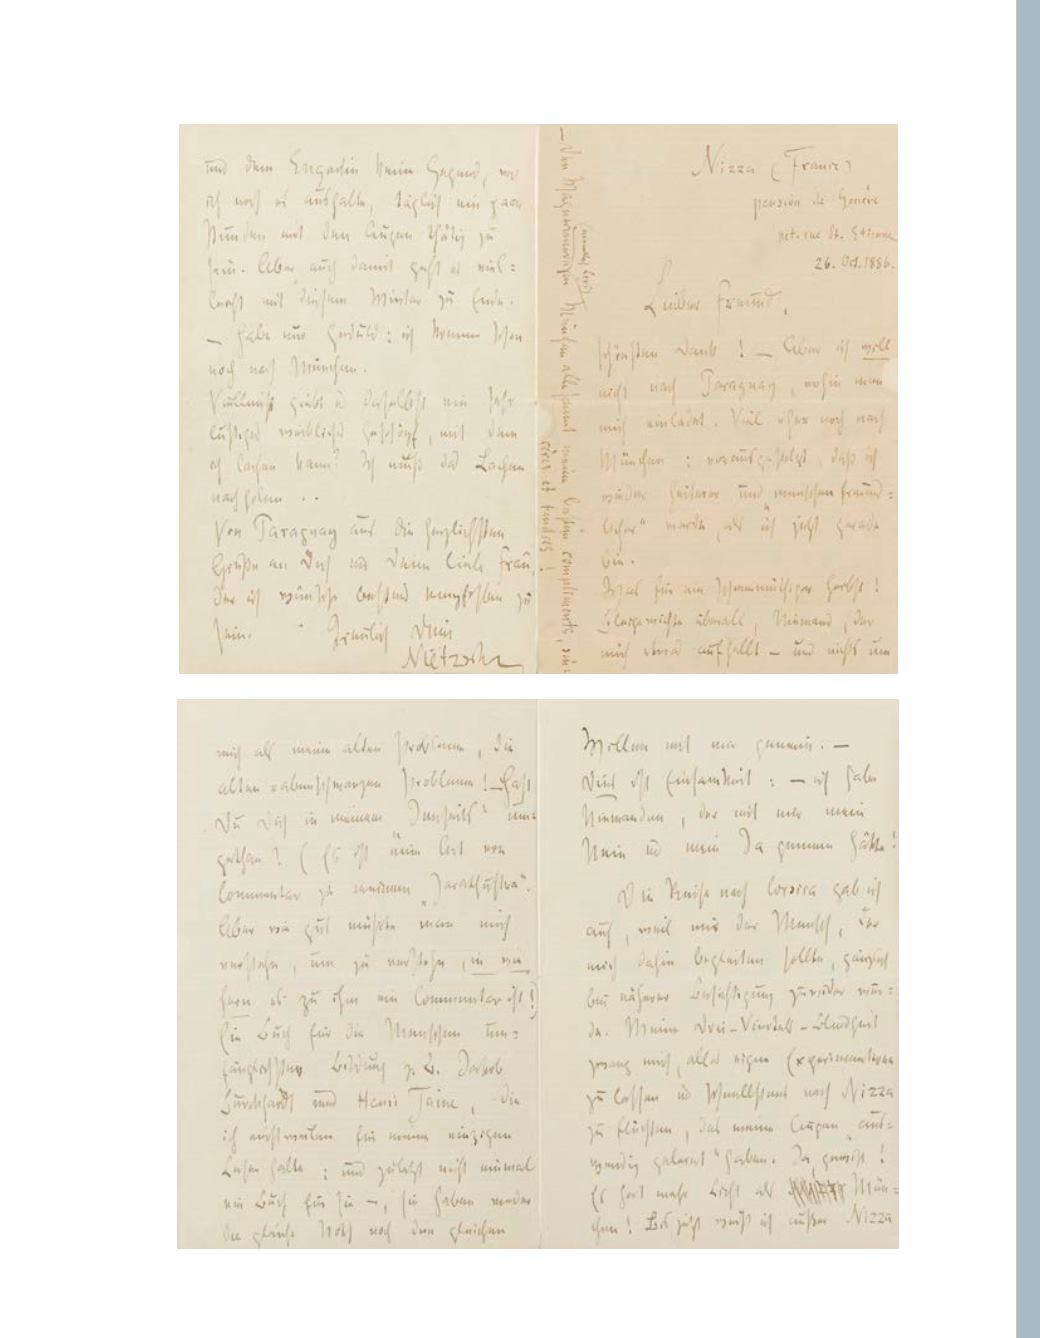 Nizza (France)
pension de Genève
pet. rue St. Etienne
26. Oct. 1886.
Lieber Freund,
schönsten Dank! — Aber ich will
nicht nach Paraguay, wohin man
mich einladet. Viel eher noch nach
München: vorausgesetzt, daß ich
wieder heiterer und „menschenfreund=
licher“ werde, als ich jetzt gerade
bin.
Was für ein schwermüthiger Herbst!
überall, Niemand, der
mich etwas aufhellt — und nichts um
mich als meine alten Probleme, die
alten rabenschwarzen Probleme! — Hast
Du Dich in meinem „Jenseits“ um=
gethan? (Es ist eine Art von
Commentar zu meinem „Zarathustra“.
Aber wie gut müßte man mich
verstehn, um zu verstehn, in wie
fern es zu ihm ein Commentar ist!)
Ein Buch für die Menschen um=
fänglichster Bildung z. B. Jakob
Burckhardt und Henri Taine, die
ich einstweilen für meine einzigen
Leser halte: und zuletzt nicht einmal
ein Buch für sie —, sie haben weder
die gleiche Noth noch den gleichen
Willen mit mir gemein. —
Dies ist Einsamkeit: — ich habe
Niemanden, der mit mir mein
Nein und mein Ja gemein hätte!
Die Reise nach Corsica gab ich
auf, weil mir der Mensch, der
mich dahin begleiten sollte, gänzlich
bei näherer Besichtigung zuwider wur=
de. Meine Drei-Viertels-Blindheit
zwang mich, alles eigne Experimentiren
zu lassen und schnellstens nach Nizza
zu flüchten, das meine Augen „aus=
wendig gelernt“ haben. Ja gewiß!
Es hat mehr Licht als Mün=
chen! Bis jetzt weiß ich außer Nizza
und dem Engadin keine Gegend, wo
ich noch es aushalte, täglich ein paar
Stunden mit den Augen thätig zu
sein. Aber auch damit geht es viel=
leicht mit diesem Winter zu Ende.
— Habe nur Geduld: ich komme schon
noch nach München.
Vielleicht giebt es daselbst ein sehr
lustiges weibliches Geschöpf, mit dem
ich lachen kann? Ich muß das Lachen
nachholen . .
Von Paraguay aus die herzlichsten
Grüße an Dich und Deine liebe Frau,
der ich wünsche bestens empfohlen zu
sein. Treulich Dein
Nietzsche
— Den Wagnerianerinnen München allesammt meine besten compliments, sin=
cères et tendres!